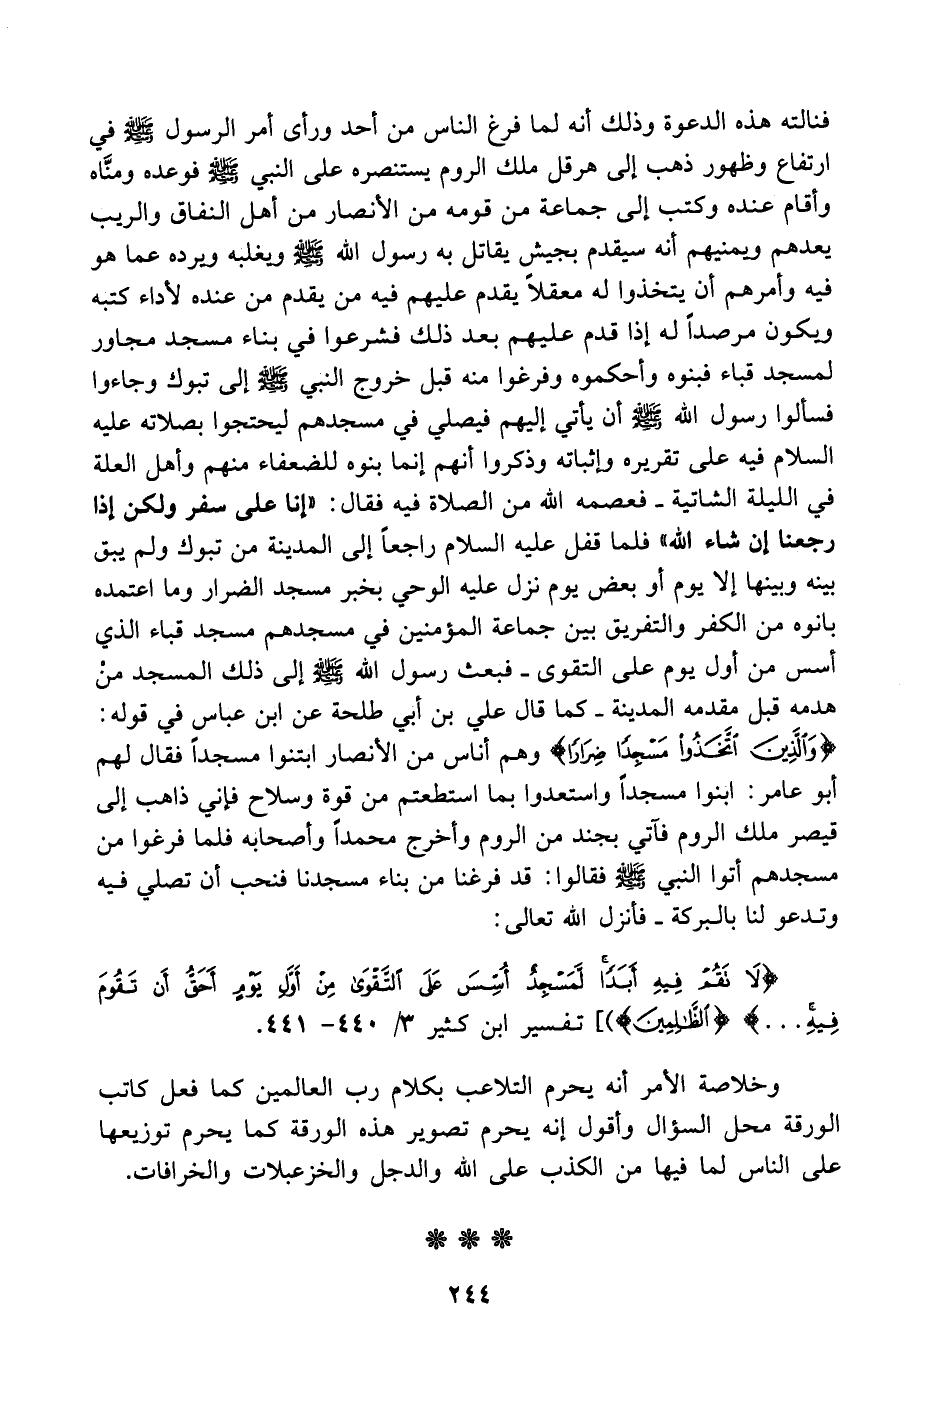 فنالته هذه الدعوة وذلك أنه لما فرغ الناس من أحد ورأى أمر الرسول ﷺ في
ارتفاع وظهور ذهب إلى هرقل ملك الروم يستنصره على النبي ﷺ فوعده ومنَّاه
وأقام عنده وكتب إلى جماعة من قومه من الأنصار من أهل النفاق والريب
يعدهم ويمنيهم أنه سيقدم بجيش يقاتل به رسول الله ﷺ ويغلبه ويرده عما هو
فيه وأمرهم أن يتخذوا له معقلاً يقدم عليهم فيه من يقدم من عنده لأداء كتبه
ويكون مرصداً له إذا قدم عليهم بعد ذلك فشرعوا في بناء مسجد مجاور
لمسجد قباء فبنوه وأحكموه وفرغوا منه قبل خروج النبي ﷺ إلى تبوك وجاءوا
فسألوا رسول الله ﷺ أن يأتي إليهم فيصلي في مسجدهم ليحتجوا بصلاته عليه
السلام فيه على تقريره وإثباته وذكروا أنهم إنما بنوه للضعفاء منهم وأهل العلة
في الليلة الشاتية ـ فعصمه الله من الصلاة فيه فقال: «إنا على سفر ولكن إذا
رجعنا إن شاء الله» فلما قفل عليه السلام راجعاً إلى المدينة من تبوك ولم يبق
بينه وبينها إلا يوم أو بعض يوم نزل عليه الوحي بخبر مسجد الضرار وما اعتمده
بانوه من الكفر والتفريق بين جماعة المؤمنين في مسجدهم مسجد قباء الذي
أسس من أول يوم على التقوى ـ فبعث رسول الله ﷺ إلى ذلك المسجد منْ
هدمه قبل مقدمه المدينة ـ كما قال علي بن أبي طلحة عن ابن عباس في قوله:
﴿وَالَّذِينَ اتَّخَذُواْ مَسْجِدًا ضِرَارًا﴾ وهم أناس من الأنصار ابتنوا مسجداً فقال لهم
أبو عامر: ابنوا مسجداً واستعدوا بما استطعتم من قوة وسلاح فإني ذاهب إلى
قيصر ملك الروم فآتي بجند من الروم وأخرج محمداً وأصحابه فلما فرغوا من
مسجدهم أتوا النبي ﷺ فقالوا: قد فرغنا من بناء مسجدنا فنحب أن تصلي فيه
وتدعو لنا بالبركة ـ فأنزل الله تعالى:
﴿لَا تَقُمْ فِيهِ أَبَدًا لَّمَسْجِدٌ أُسِّسَ عَلَى التَّقْوَىٰ مِنْ أَوَّلِ يَوْمٍ أَحَقُّ أَن تَقُومَ
فِيهِ...﴾ ﴿الظَّالِمِينَ﴾)] تفسير ابن كثير ٣/ ٤٤٠- ٤٤١.
وخلاصة الأمر أنه يحرم التلاعب بكلام رب العالمين كما فعل كاتب
الورقة محل السؤال وأقول إنه يحرم تصوير هذه الورقة كما يحرم توزيعها
على الناس لما فيها من الكذب على الله والدجل والخزعبلات والخرافات.
❋ ❋ ❋
٢٤٤